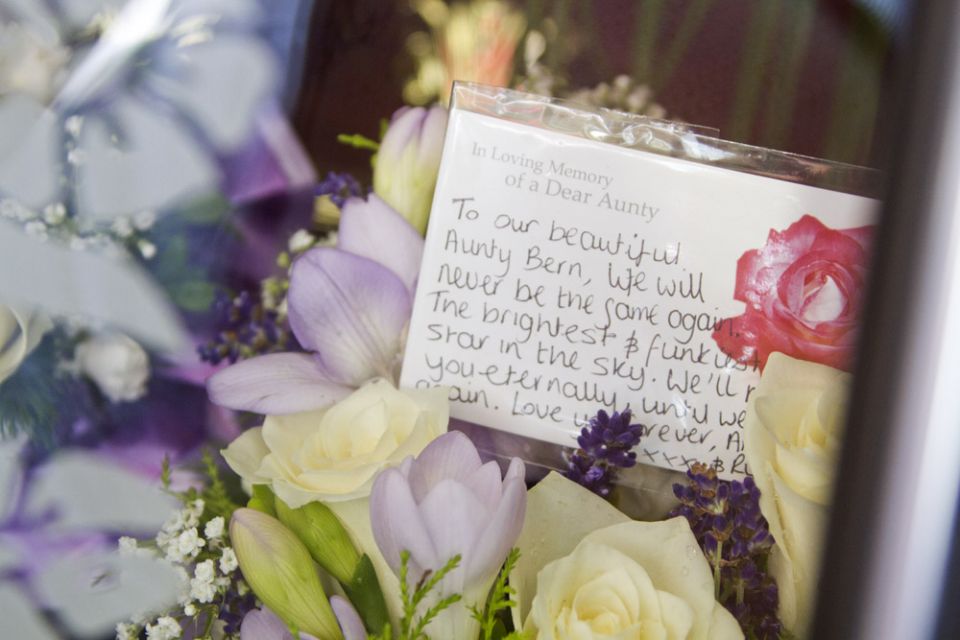 In Loving Memory
of a Dear Aunty
To our beautiful
Aunty Bern, We will
never be the same again.
The brightest & funkiest
star in the sky. We'll
you eternally, until we
again. Love forever,
xxx &